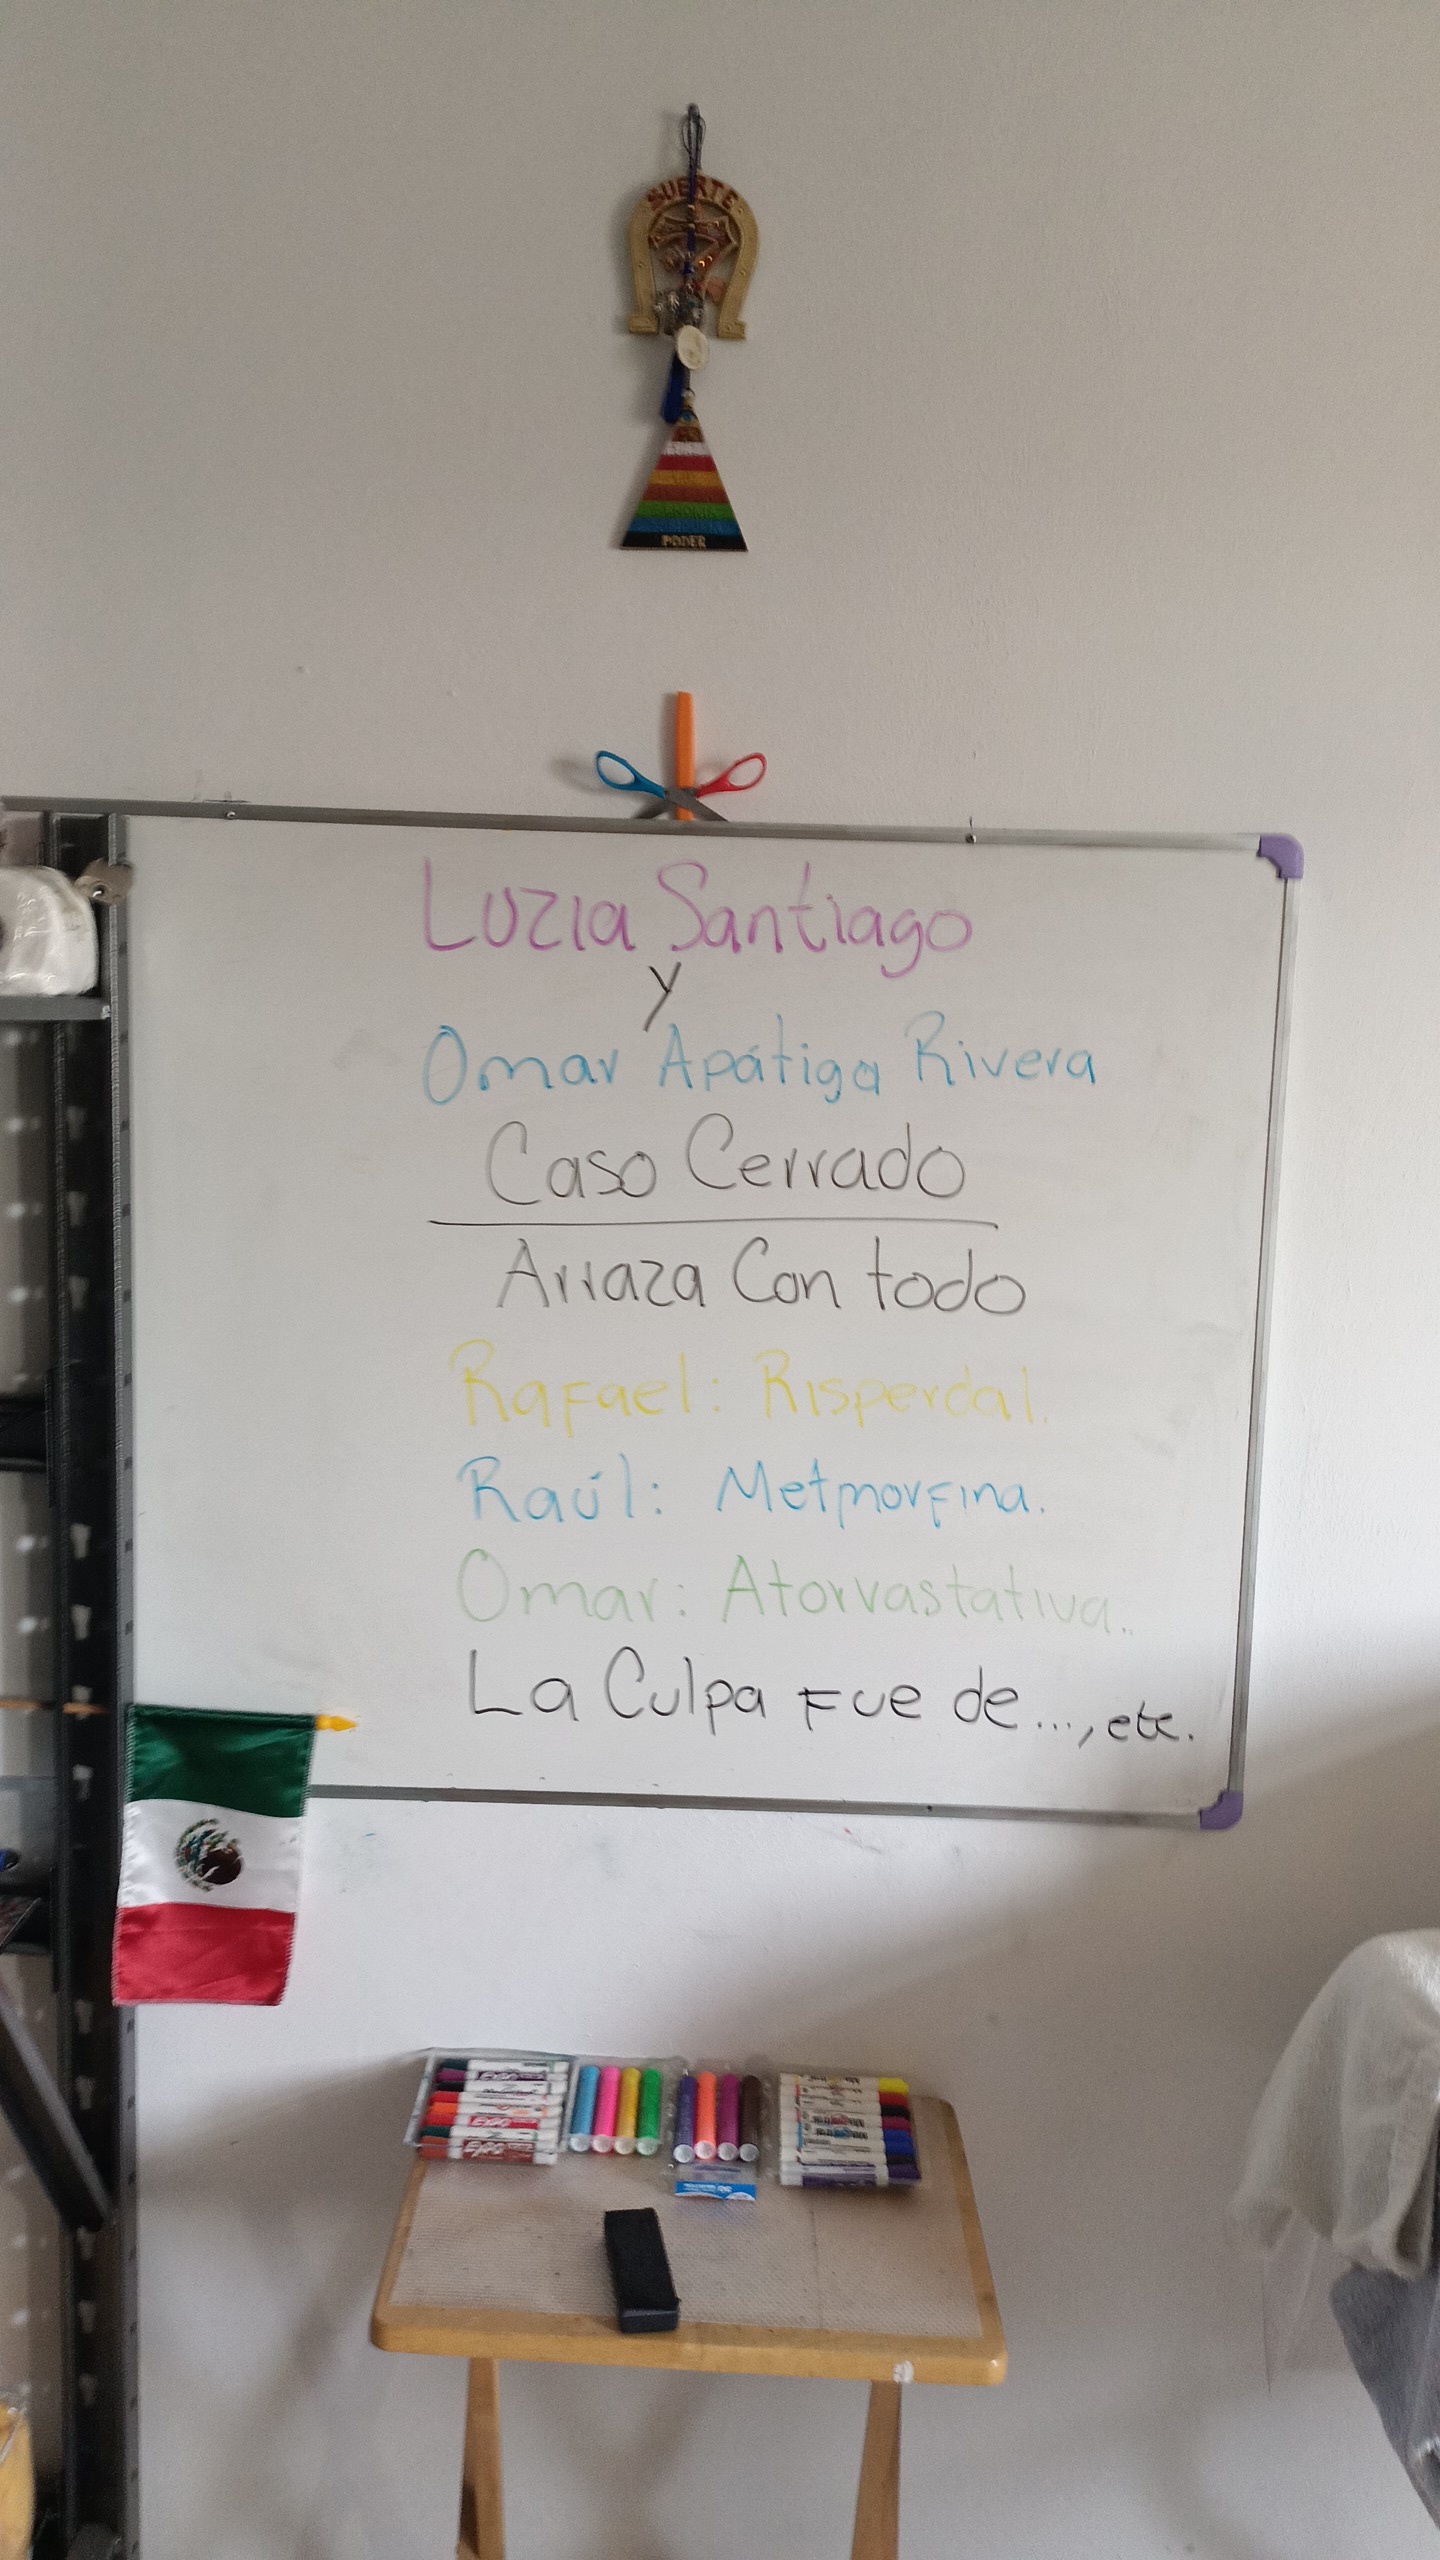 SUERTE
PODER
Luzia Santiago
y
Omar Apátiga Rivera
Caso Cerrado
Arraza Con todo
Rafael: Risperdal.
Raúl: Metmorfina.
Omar: Atorvastativa..
La Culpa Fue de..., etc.
EXPO
EXPO
EXPO